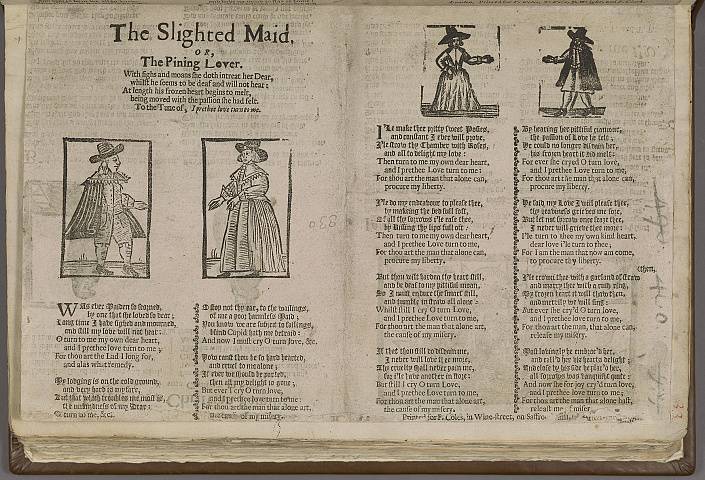 The Slighted Maid,
OR,
The Pining Lover.
With sighs and moans she doth intreat her Dear,
whilst he seems to be deaf and will not hear;
At length his frozen heart begins to melt,
being moved with the passion she had felt.
To the Tune of, I prethee love turn to me.
WAs ever Maiden so scorned,
by one that she loved so dear;
Long time I have sighed and mourned,
and still my love will not hear:
O turn to me my own dear heart,
and I prethee love turn to me;
For thou art the Lad I long for,
and alas what remedy.
My lodging is on the cold ground,
and very hard is my fare,
But that which troubles me most is,
the unkindness of my Dear:
O turn to me, &c.
O stop not thy ear, to the wailings,
of me a poor harmless Maid;
You know we are subject to failings,
blind Cupid hath me betraid:
And now I must cry O turn love, &c.
How canst thou be so hard hearted,
and cruel to me alone;
If ever we should be parted,
then all my delight is gone;
But ever I cry O turn love,
and I prethee love turn to me:
For thou art the man that alone art,
the cause of my misery.
I'Le make thee pritty sweet Posies,
and constant I ever will prove,
I'le strow thy Chamber with Roses,
and all to delight my love:
Then turn to me my own dear heart,
and I prethee Love turn to me:
For thou art the man that alone can,
procure my liberty.
I'le do my endeavour to please thee,
by making the bed full soft,
Of all thy sorrows i'le ease thee,
by kissing thy lips full oft:
Then turn to me my own dear heart,
and I prethee Love turn to me,
For thou art the man that alone can,
procure my liberty.
But thou wilt harden thy heart still,
and be deaf to my pitiful moan,
So I must endure the smart still,
and tumble in straw all alone:
Whilst still I cry O turn Love,
and I prethee Love turn to me,
For thou art the man that alone art,
the cause of my misery.
If that thou still do disdain me,
I never will love thee more,
Thy cruelty shall never pain me,
for i'le love another in store:
But still I cry O turn Love,
and I prethee Love turn to me,
For thou art the man that alone art,
the cause of my misery.
By hearing her pittiful clamour,
the passion of Love he felt;
He could no longer disdain her,
his frozen heart it did melt:
For ever she cryed O turn love,
and I prethee Love turn to me,
For thou art the man that alone can,
procure my liberty.
He said my Love I will please thee,
thy heaviness grieves me sore,
But let not sorrow once seize thee,
I never will grieve thee more:
I'le turn to thee my own kind heart,
dear love i'le turn to thee;
For I am the man that now am come,
to procure thy liberty.
I'le crown thee with a garland of straw then,
and marry thee with a rush ring,
My frozen heart it will thaw then,
and merrily we will sing:
But ever she cry'd O turn love,
and I prethee love, turn to me,
For thou art the man, that alone can,
release my misery.
Most lovingly he embrac'd her,
and call'd her his hearts delight;
And close by his side he plac'd her,
all sorrows was vanquisht quite:
And now she for joy cry'd turn love,
and I prethee love turn to me;
For thou art the man that alone hast,
releast me of misery.
Printed for F. Coles, in Wine-street, on Saffro